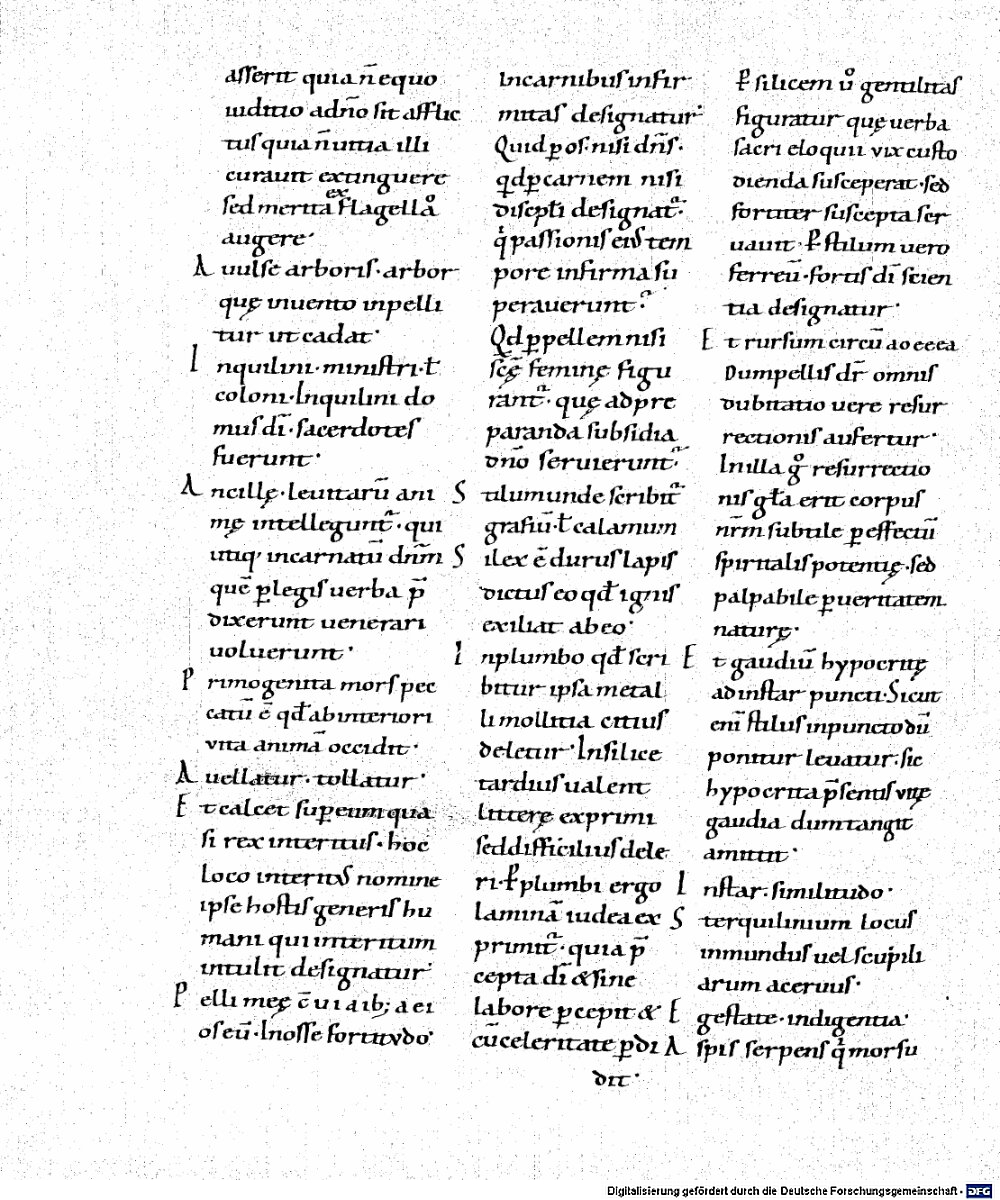 asserit quia n̄ equo
iuditio ad nō sit afflic
tus quia n̄ uitia illi
curauit extinguere
sed merita ex flagellā
augere·
Auulse arboris· arbor
quę uiuento inpelli
tur ut cadat·
Inquilini· ministri· ł
coloni· Inquilini do
mus dī· sacerdotes
fuerunt·
Ancillę· leuitarū ani
mę intellegunt᷑· qui
utiq; incarnatū dn̄m
quē ꝑ legis uerba p̄
dixerunt uenerari
uoluerunt·
Primogenita mors pec
catū ē qđ ab interiori
vita animā occidit·
Auellatur· tollatur·
Et calcet sup eum qua
si rex interitus· hoc
loco interitus nomine
ipse hostis generis hu
mani qui interitum
intulit designatur·
Pelli meę
os eū· In osse fortitudo·
in carnibus infir
mitas designatur·
Quid ꝑ os· nisi dn̄s·
qđ ꝑ carnem nisi
discipłi designat᷑·
passionis eius tem
pore infirma su
perauerunt·
Qđ ꝑ pellem nisi
scę feminę figu
rant᷑· quę ad pre
paranda subsidia
dn̄o seruierunt·
Stilum unde scribit᷑
grafiū· ł calamum
Silex ē durus lapis
dictus eo qđ ignis
exiliat ab eo·
In plumbo qđ scri
bitur ipsa metal
li mollitia citius
deletur· In silice
tardius ualent
litterę exprimi
sed difficilius dele
ri· ꝑ plumbi ergo
laminā iudea ex
primit᷑· quia p̄
cepta dī & sine
labore ꝑcepit &
cū celeritate ꝑdi
dit·
ꝑ silicem uͦ gentilitas
figuratur quę uerba
sacri eloquii vix custo
dienda susceperat· sed
fortiter suscepta ser
uauit· ꝑ stilum uero
ferreū· fortis dī scien
tia designatur·
Et rursum circū
Dum pellis dr̄ omnis
dubitatio uere resur
rectionis aufertur·
In illa gͦ resurrectio
nis gła erit corpus
nr̄m subtile ꝑ effectū
spiritalis potentię· sed
palpabile ꝑ ueritatem
naturę·
Et gaudiū hypocritę
ad instar puncti· Sicut
enī stilus in puncto dū
ponitur leuatur· sic
hypocrita p̄sentis vitę
gaudia dum tangit
amittit·
Instar· similitudo·
Sterquilinium locus
inmundus uel scupili
arum aceruus·
Egestate· indigentia·
Aspis serpens qͥ morsu
Digitalisierung gefördert durch die Deutsche Forschungsgemeinschaft - DFG